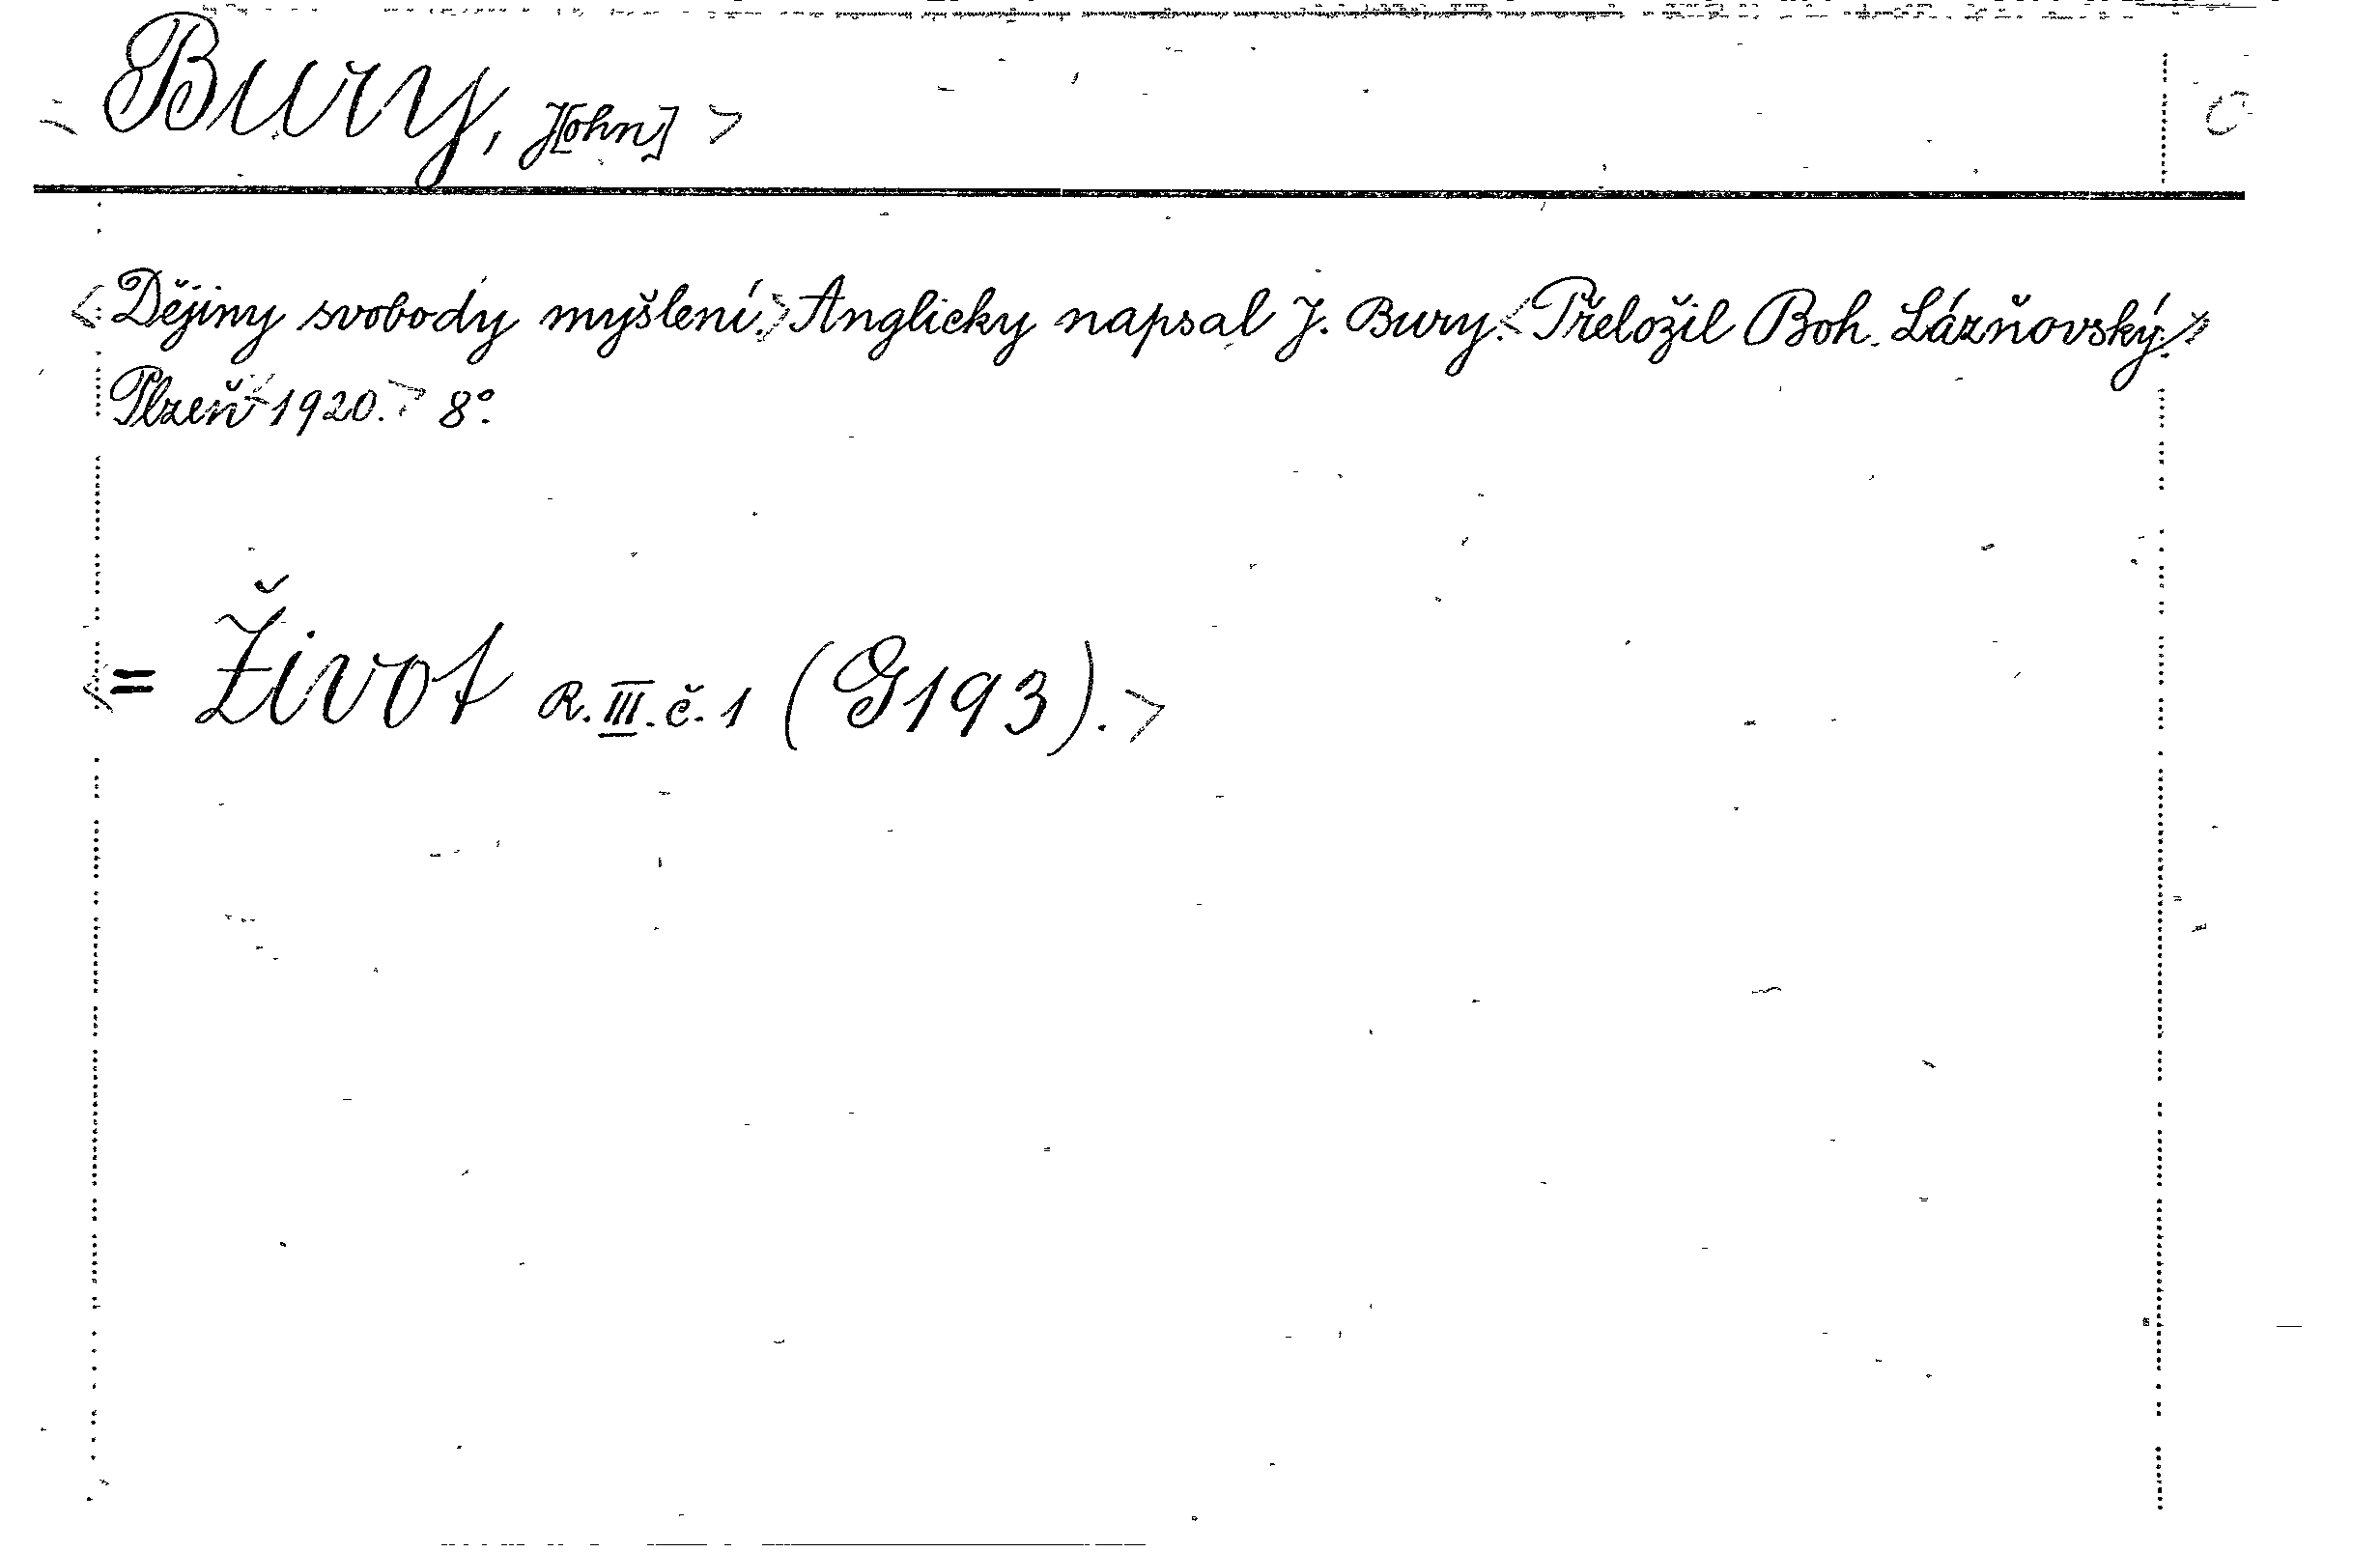 Bury, J[ohn] >
<Dějiny svobody myšlení.> Anglicky napsal J. Bury. <Přeložil Boh. Lázňovský.>
Plzeň <1920.> 8°.
<= Život R. III. č. 1 (G193).>